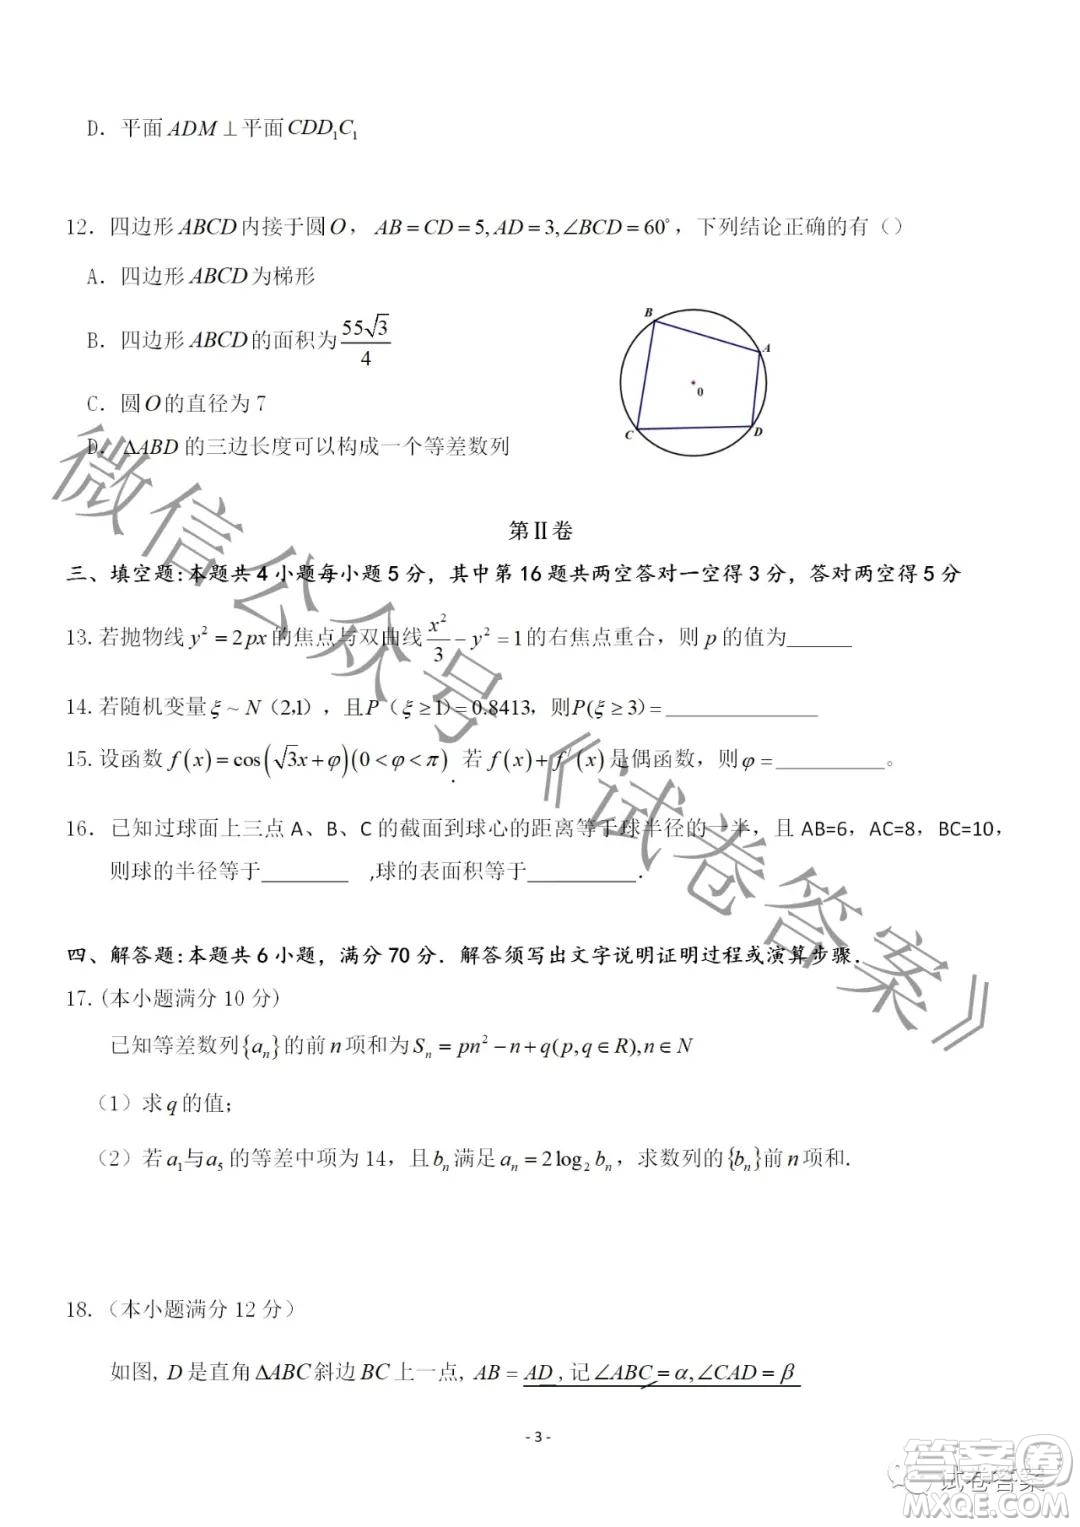 D．平面ADM⊥平面CDD₁C₁
12．四边形ABCD内接于圆O，AB=CD=5,AD=3,∠BCD=60°，下列结论正确的有（）
A．四边形ABCD为梯形
B．四边形ABCD的面积为55√3/4
C．圆O的直径为7
D．ΔABD的三边长度可以构成一个等差数列
B
A
O
C
D
第Ⅱ卷
三、填空题:本题共4小题每小题5分，其中第16题共两空答对一空得3分，答对两空得5分
13.若抛物线y²=2px的焦点与双曲线x²/3-y²=1的右焦点重合，则p的值为______
14.若随机变量ξ~N（2,1），且P（ξ≥1)=0.8413，则P(ξ≥3)=______________
15.设函数f(x)=cos(√3x+φ)(0<φ<π).若f(x)+f′(x)是偶函数，则φ=__________。
16．已知过球面上三点A、B、C的截面到球心的距离等于球半径的一半，且AB=6，AC=8，BC=10，
则球的半径等于________ ,球的表面积等于__________．
四、解答题:本题共6小题，满分70分．解答须写出文字说明证明过程或演算步骤．
17.(本小题满分10分)
已知等差数列{aₙ}的前n项和为Sₙ=pn²-n+q(p,q∈R),n∈N
（1）求q的值;
（2）若a₁与a₅的等差中项为14，且bₙ满足aₙ=2log₂bₙ，求数列的{bₙ}前n项和.
18.（本小题满分12分）
如图, D是直角ΔABC斜边BC上一点, AB=AD,记∠ABC=α,∠CAD=β
- 3 -
微信公众号《试卷答案》
试卷答案
答案圈
MXQE.COM